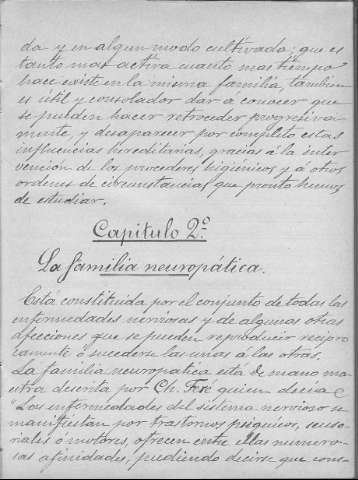 da y en algun modo cultivada; que es
tanto mas activa cuanto mas tiempo
hace existe en la misma familia, tambien
es útil y consolador dar a conocer que
se pueden hacer retroceder progresiva-
mente, y desaparecer por completo estas
influencias hereditarias, gracias á la inter
vención de los procederes higiénicos y á otros
ordenes de circunstancias que pronto hemos
de estudiar.
Capitulo 2º.
La familia neuropática.
Está constituida por el conjunto de todas las
enfermedades nerviosas y de algunas otras
afecciones que se pueden reproducir recipro
camente ó sucederse las unas á las otras.
La familia neuropatica está de mano ma
estra descrita por Ch. Feré quien decía
"Las enfermedades del sistema nervioso se
manifiestan por trastornos psiquicos, senso-
riales ó motores, ofrecen entre ellas numero-
sas afinidades, pudiendo decirse que cons-